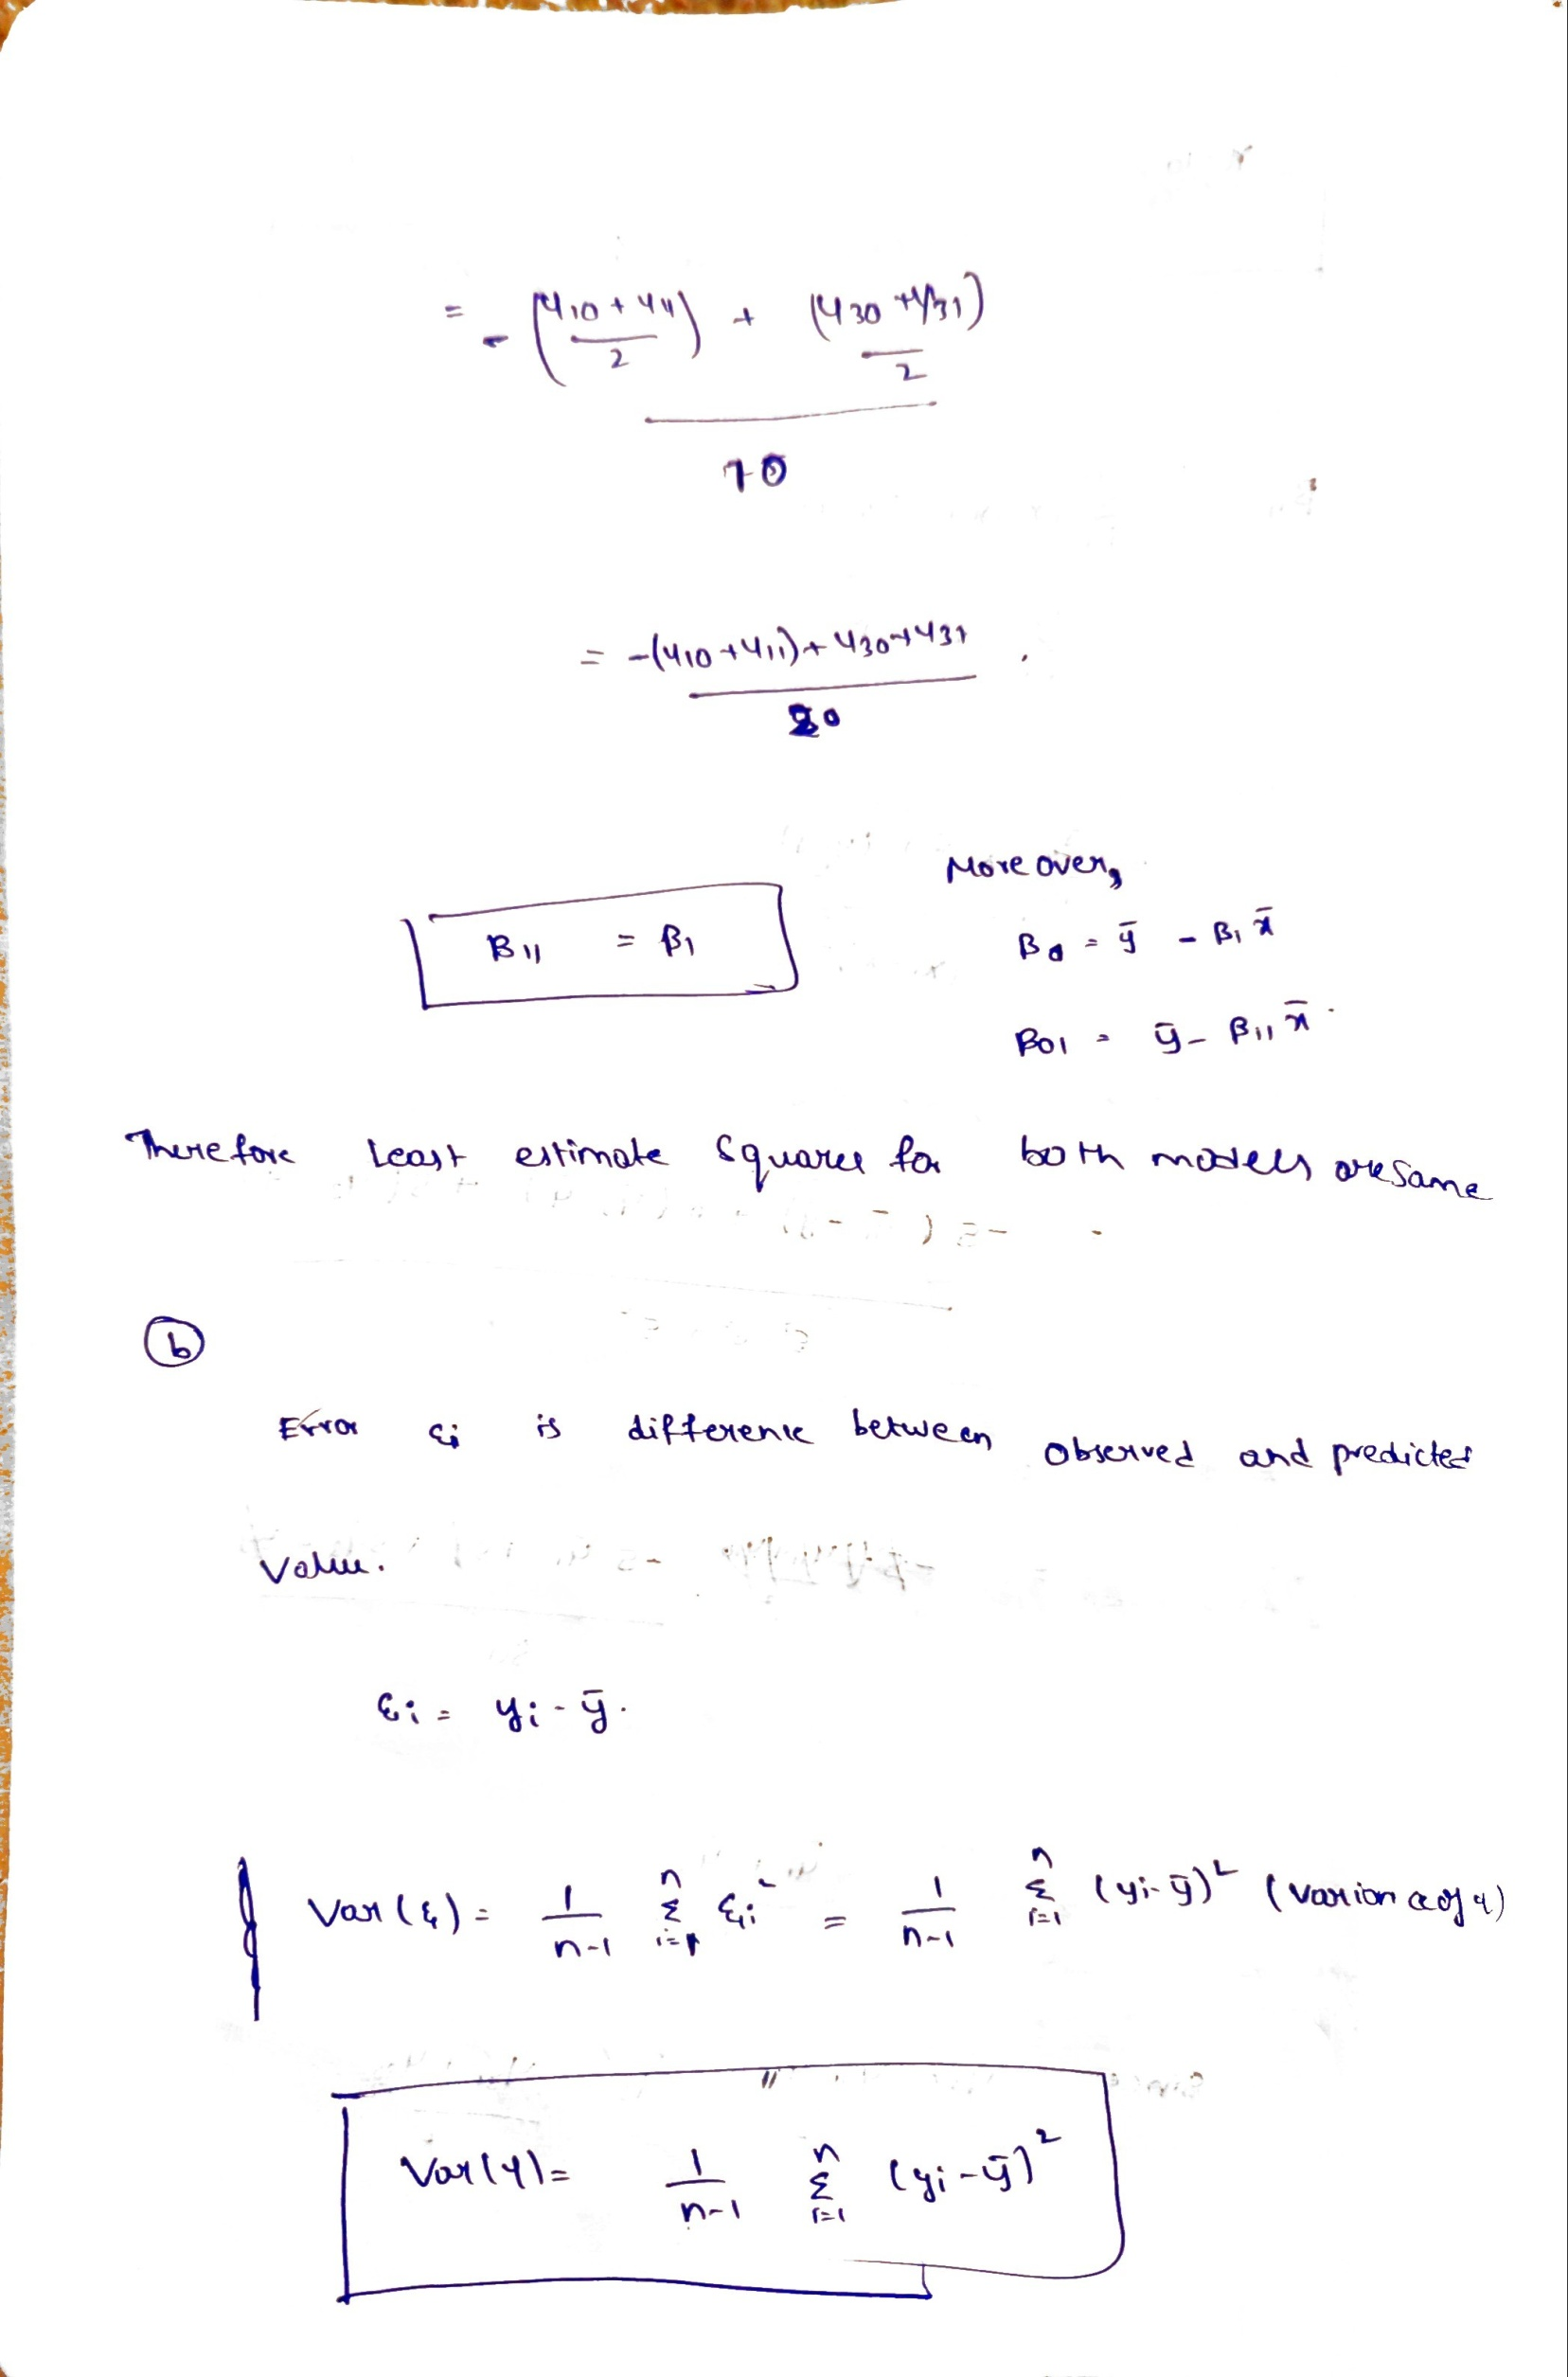 = - (y10 + y11 / 2) + (y30 + y31) / 2
10
= -(y10 + y11) + y30 + y31 .
20
More over,
B11 = β1
B0 = ȳ - β1 x̄
β01 = ȳ - β11 x̄ .
Therefore Least estimate squares for both models are same
(b)
Error εi is difference between observed and predicted
Value.
εi = yi - ȳ .
Var(ε) = 1/n-1 Σ i=1 n εi² = 1/n-1 Σ i=1 n (yi - ȳ)² (Variance of y)
Var(y) = 1/n-1 Σ i=1 n (yi - ȳ)²